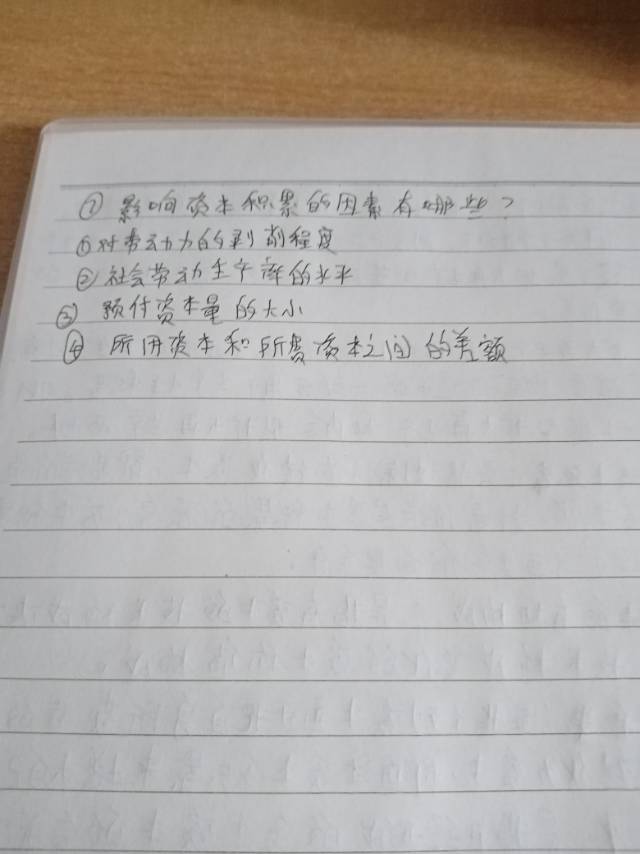 ① 影响资本积累的因素有哪些?
①对劳动力的剥削程度
②社会劳动生产率的水平
③ 预付资本量的大小
④ 所用资本和所费资本之间的差额